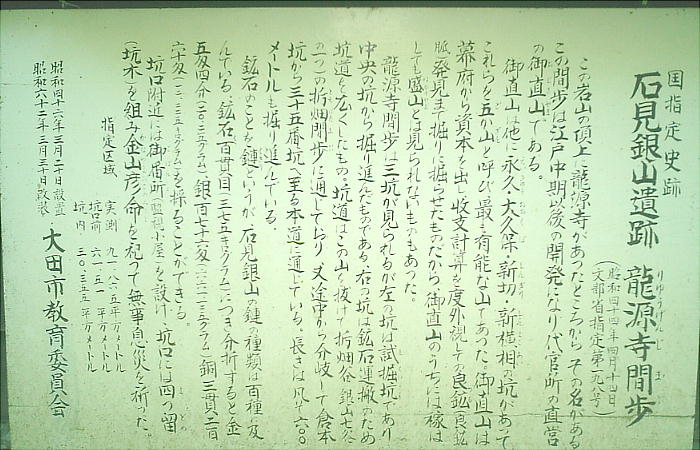 国指定史跡
石見銀山遺跡 龍源寺間歩
りゅうげんじ まぶ
(昭和四十四年四月十四日
文部省指定第一九八号)
この岩山の頂上に龍源寺があったところからその名がある
この間歩は江戸中期以後の開発になり代官所の直営
の御直山である。
御直山は他に永久・大久保・新切・新横相の坑があって
これらを五か山と呼び最も有能な山であった。御直山は
幕府から資本を出し収支計算を度外視しての良鉱良鉱
脈発見まで掘りに掘らせたものだから、御直山のうちには稼は
しても盛山とは見られないものもあった。
龍源寺間歩は三坑が見られるが左の坑は試掘坑であり
中央の坑から掘り進んだものである。右の坑は鉱石運搬のため
坑道を広くしたもの。坑道はこの山を抜けて折畑谷
の二つの折畑間歩に通じており、又途中から分岐して倉本
坑から三十五番坑へ至る本道に通じている。長さは凡そ六〇〇
メートルも掘り進んでいる。
鉱石のことを鏈というが、石見銀山の鏈の種類は百種に及
んでいる。鉱石百貫目(三七五キログラム)につき分析すると金
五匁四分 銀百七十六匁 銅三貫二百
六十匁 を採ることができる。
坑口附近には御番所(監視小屋)を設け、坑口には四つ留
(坑木)を組み金山彦ノ命を祀って無事息災を祈った。
指定区域
実測 九一八・六五平方メートル
坑口前 六一・五一平方メートル
坑内 三〇・三五五平方メートル
昭和四十六年三月二十日設置
昭和六十二年三月三十日改装
大田市教育委員会